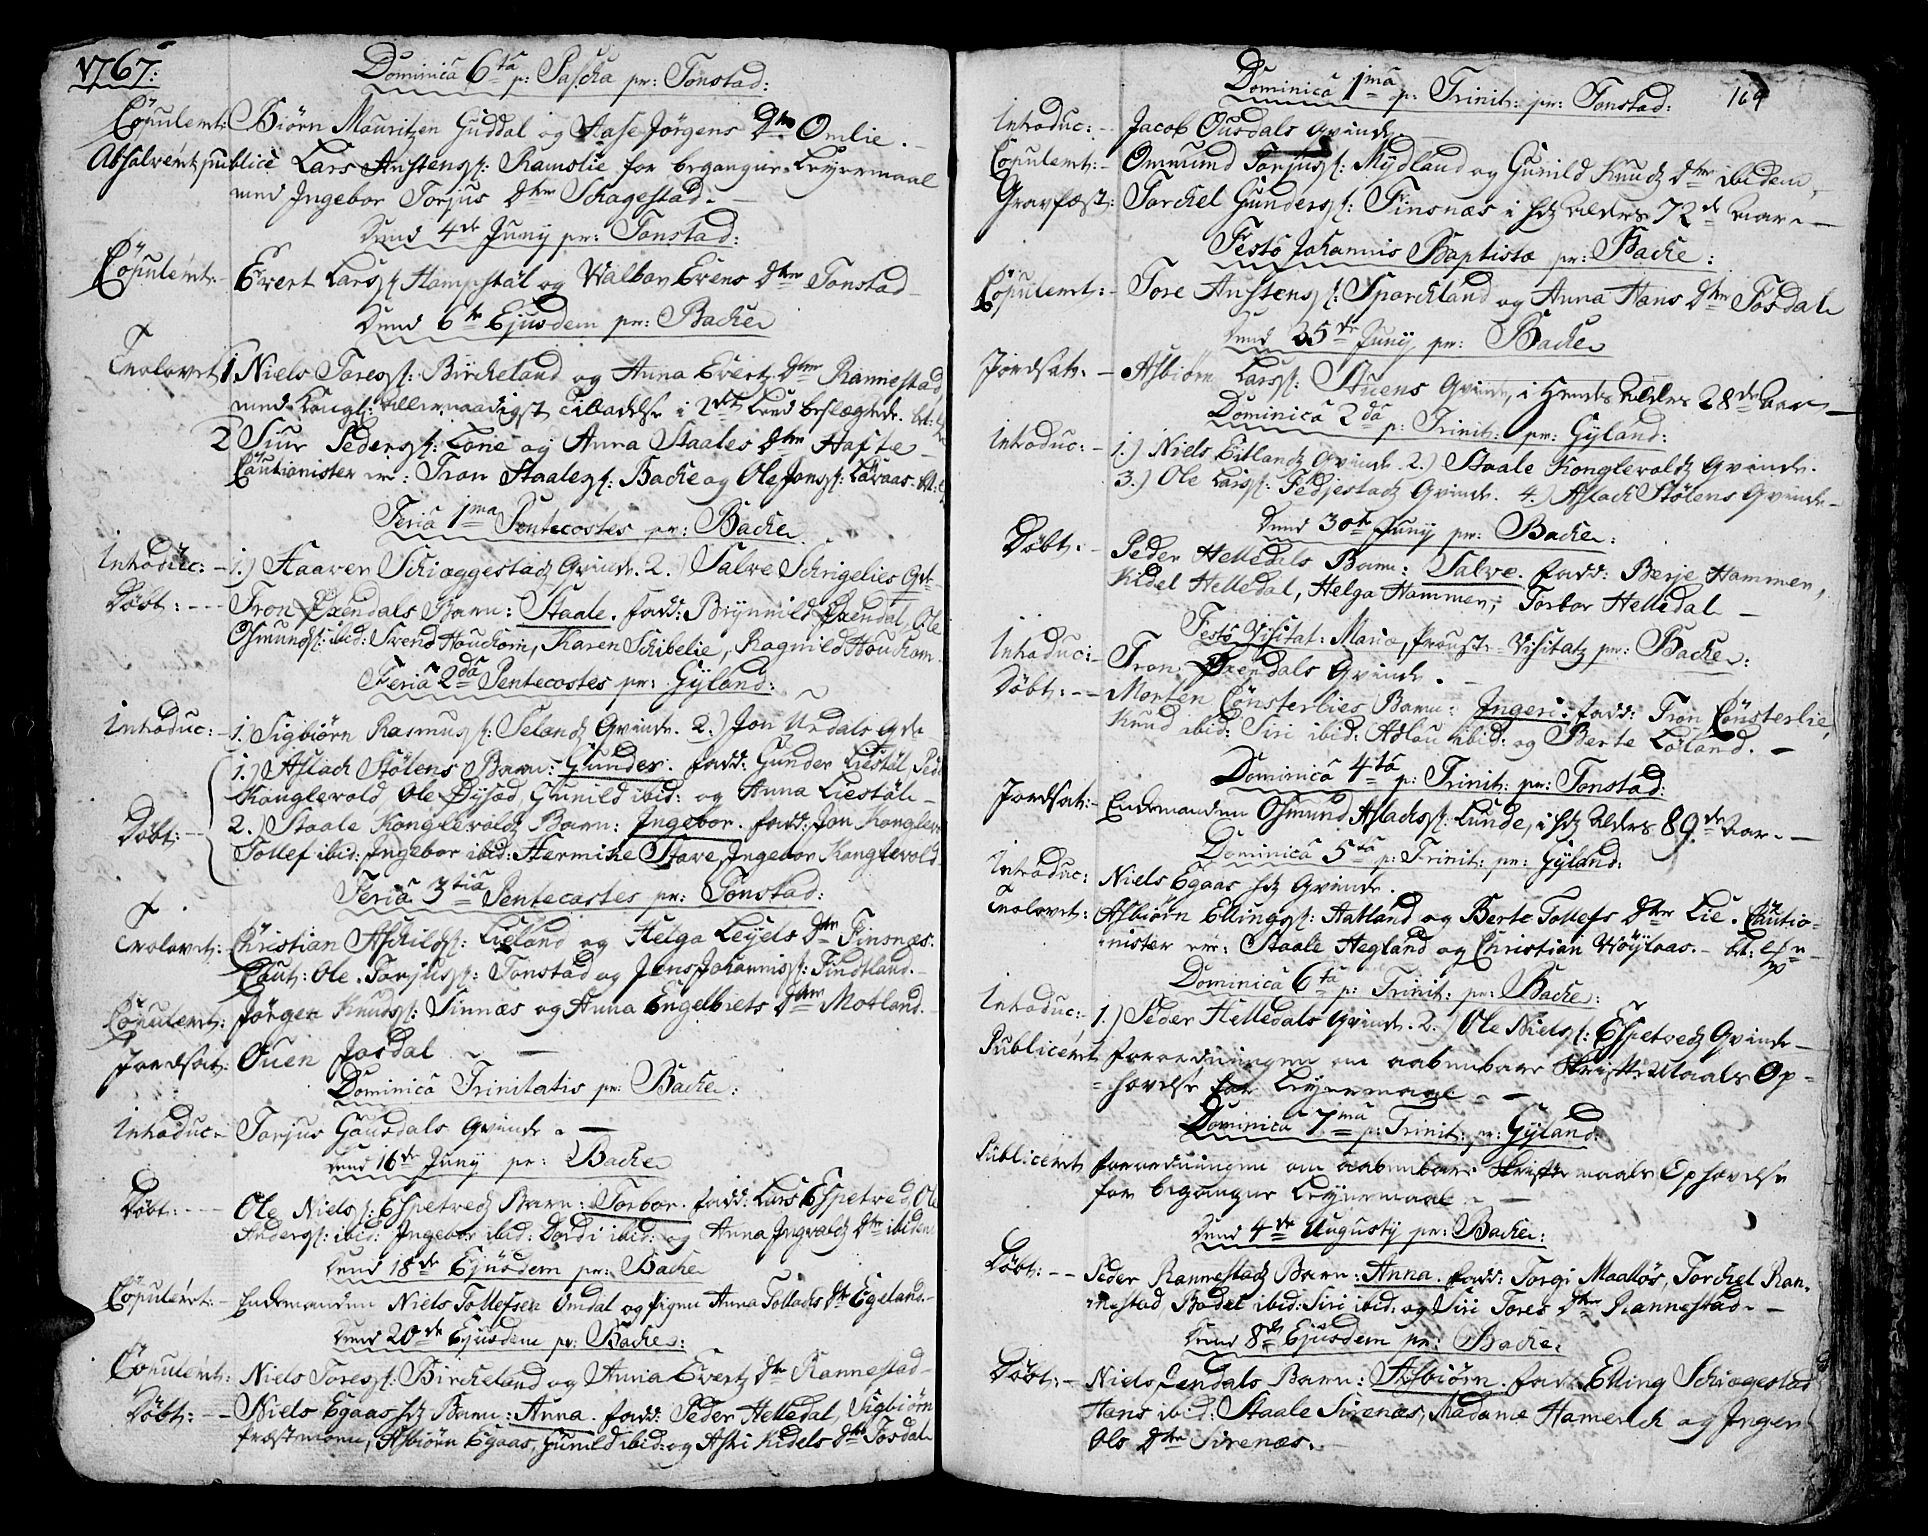 1767:
Dominica 6ta p: Pascha pr: Tonstad:
Copulerit: Biörn Mauritzen Guddal og Aase Jörgens Dtr Omlie.
Absolverit publice Lars Austens s: Ramslie for begangne Leyermaal
med Ingebor Torjus Dtr Skagestad.
Dend 4de Juny pr: Tonstad:
Copulerit. Evert Lars s: Hampstal og Walbor Evens Dtr Tonstad
Dend 6te Ejusdem pr: Backe
Trolovet 1. Niels Tores s: Birckeland og Anna Evertz Dtr Rannestad,
med Kongl: allernaadigst Tilladelse i 2det Leed beslægtede. bt:
2 Siur Peders s: Tone og Anna Staales Dtr Hafte
Cautionister er: Tron Staales s: Backe og Ole Jons s: Lövaas. bt:
Feria 1ma Pentecostes pr: Backe
Introduc: 1.) Haaver Schieggestadz Qvinde. 2. Salve Schrigelies Qde
Döbt: Tron Öxendals Barn: Staale. fadd: Brynnild Öxendal, Ole
Osmunds s: ibid: Svend Houckom, Karen Schibelie, Ragnild Houckom
Feria 2da Pentecostes pr: Gyland:
Introduc: 1. Sigbiörn Rasmus s: Selandz Qvinde. 2.) Jon Urdals Qde
1.) Aslach Stölens Barn: Gunder. fadd: Gunder Liestöl, Peder
Konglevold, Ole Öysæd, Gunild ibid: og Anna Liestöl
Döbt: 2.) Staale Konglevoldz Barn: Ingebor. fadd: Jon Konglev
Tollef ibid: Ingebor ibid: Hermike Stare, Ingebor Konglevold
Feria 3tia Pentecostes pr: Tonstad:
Trolovet: Christian Aschilds s: Lieland og Helga Leyels Dtr Finsnæs.
Caut: Ole Torjus s: Tonstad og Jens Johannis s: Findtland.
Copulerit: Jörgen Knuds s: Sinnæs og Anna Engelbrets Dtr Motland.
Jordsat: Ouen Josdal
Dominica Trinitatis pr: Backe:
Introduc. Torjus Gousdals Qvinde.
Dend 16de Juny pr: Backe
Döbt: Ole Niels s: Espetvedz Barn: Torbor. fadd: Lars Espetved, Ole
Anders s: ibid: Ingebor ibid: Dordi ibid: og Anna Ingvaldz Dtr ibidem
Dend 18de Ejusdem pr: Backe
Copulerit. Enkemanden Niels Tollefsen Omdal og Pigen Anna Tollachs Dtr Egeland.
Dend 20de Ejusdem pr: Backe:
Copulerit: Niels Tores s: Birckeland og Anna Evertz Dtr Rannestad
Döbt: Niels Egaas hs Barn: Anna. fadd: Peder Helledal, Sigbiörn
Fræstmoen, Asbiörn Egaas, Gunild ibid: og Aski Kidels Dtr Josdal
Dominica 1ma p: Trinit: pr: Tonstad: 169
Introduc: Jacob Ousdals Qvinde.
Copulerit: Ommund Torjus s: Mydland og Gunild Knudz Dtr ibidem.
Gravfæst: Torckel Gunders s: Finsnæs i hs Alders 72de Aar.
Festo Johannis Baptistæ pr: Backe:
Copulerit: Tore Austens s: Sparckland og Anna Hans Dtr Josdal
Dend 25de Juny pr: Backe
Jordsat. Asbiörn Lars s: Stuens Qvinde, i Hendes Alders 28de Aar
Dominica 2da p: Trinit: pr: Gyland:
Introduc: 1.) Niels Eitlandz Qvinde. 2.) Staale Konglevoldz Qvinde.
3.) Ole Lars s: Fedjestadz Qvinde. 4.) Aslach Stölens Qvinde
Dend 30te Juny pr: Backe:
Döbt. Peder Helledals Barn: Salve. fadd: Berje Hammen,
Kidel Helledal, Helga Hammen, Torbor Helledal
Festo Visitat: Mariæ, Proust Visitatz pr: Backe:
Introduc: Tron Öxendals Qvinde.
Döbt: Morten Lönsterlies Barn: Ingeri. fadd: Tron Lönsterlie,
Knud ibid: Siri ibid: Adlau ibid: og Berte Loland.
Dominica 4ta p: Trinit: pr: Tonstad:
Jordsat: Enkemanden Osmund Aslachs s: Lunde, i hs Alders 89de Aar.
Dominica 5ta p: Trinit: pr: Gyland:
Introduc: Niels Egaas hs Qvinde.
Trolovet: Asbiörn Ellings s: Aatland og Berte Tollefs Dtr Lie. Cautio-
nister er: Staale Hegland og Christian Höylaas. bt:
Dominica 6ta p: Trinit: pr: Backe:
Introduc: 1.) Peder Helledals Qvinde. 2.) Ole Niels s: Espetvedz Qvinde
Publiceret Forordningen om aabenbare Skriftemaals Op=
=hævelse for Leyermaal
Dominica 7ma p: Trinit: pr: Gyland:
Publiceret Forordningen om aabenbare Skriftemaals Ophævelse
for begangne Leyermaal
Dend 4de Augusty pr: Backe:
Döbt: Peder Rannestadz Barn: Anna. fadd: Torgi Moallös, Torckel Ran-
nestad, Bodel ibid: Siri ibid: og Siri Tores Dtr Rannestad
Dend 8de Ejusdem pr: Backe.
Döbt: Niels Lendals Barn: Asbiörn. fadd: Elling Schiægestad
Hans ibid: Staale Sirenæs, Madame Hamerich og Inger
Ols Dtr Sirenæs.